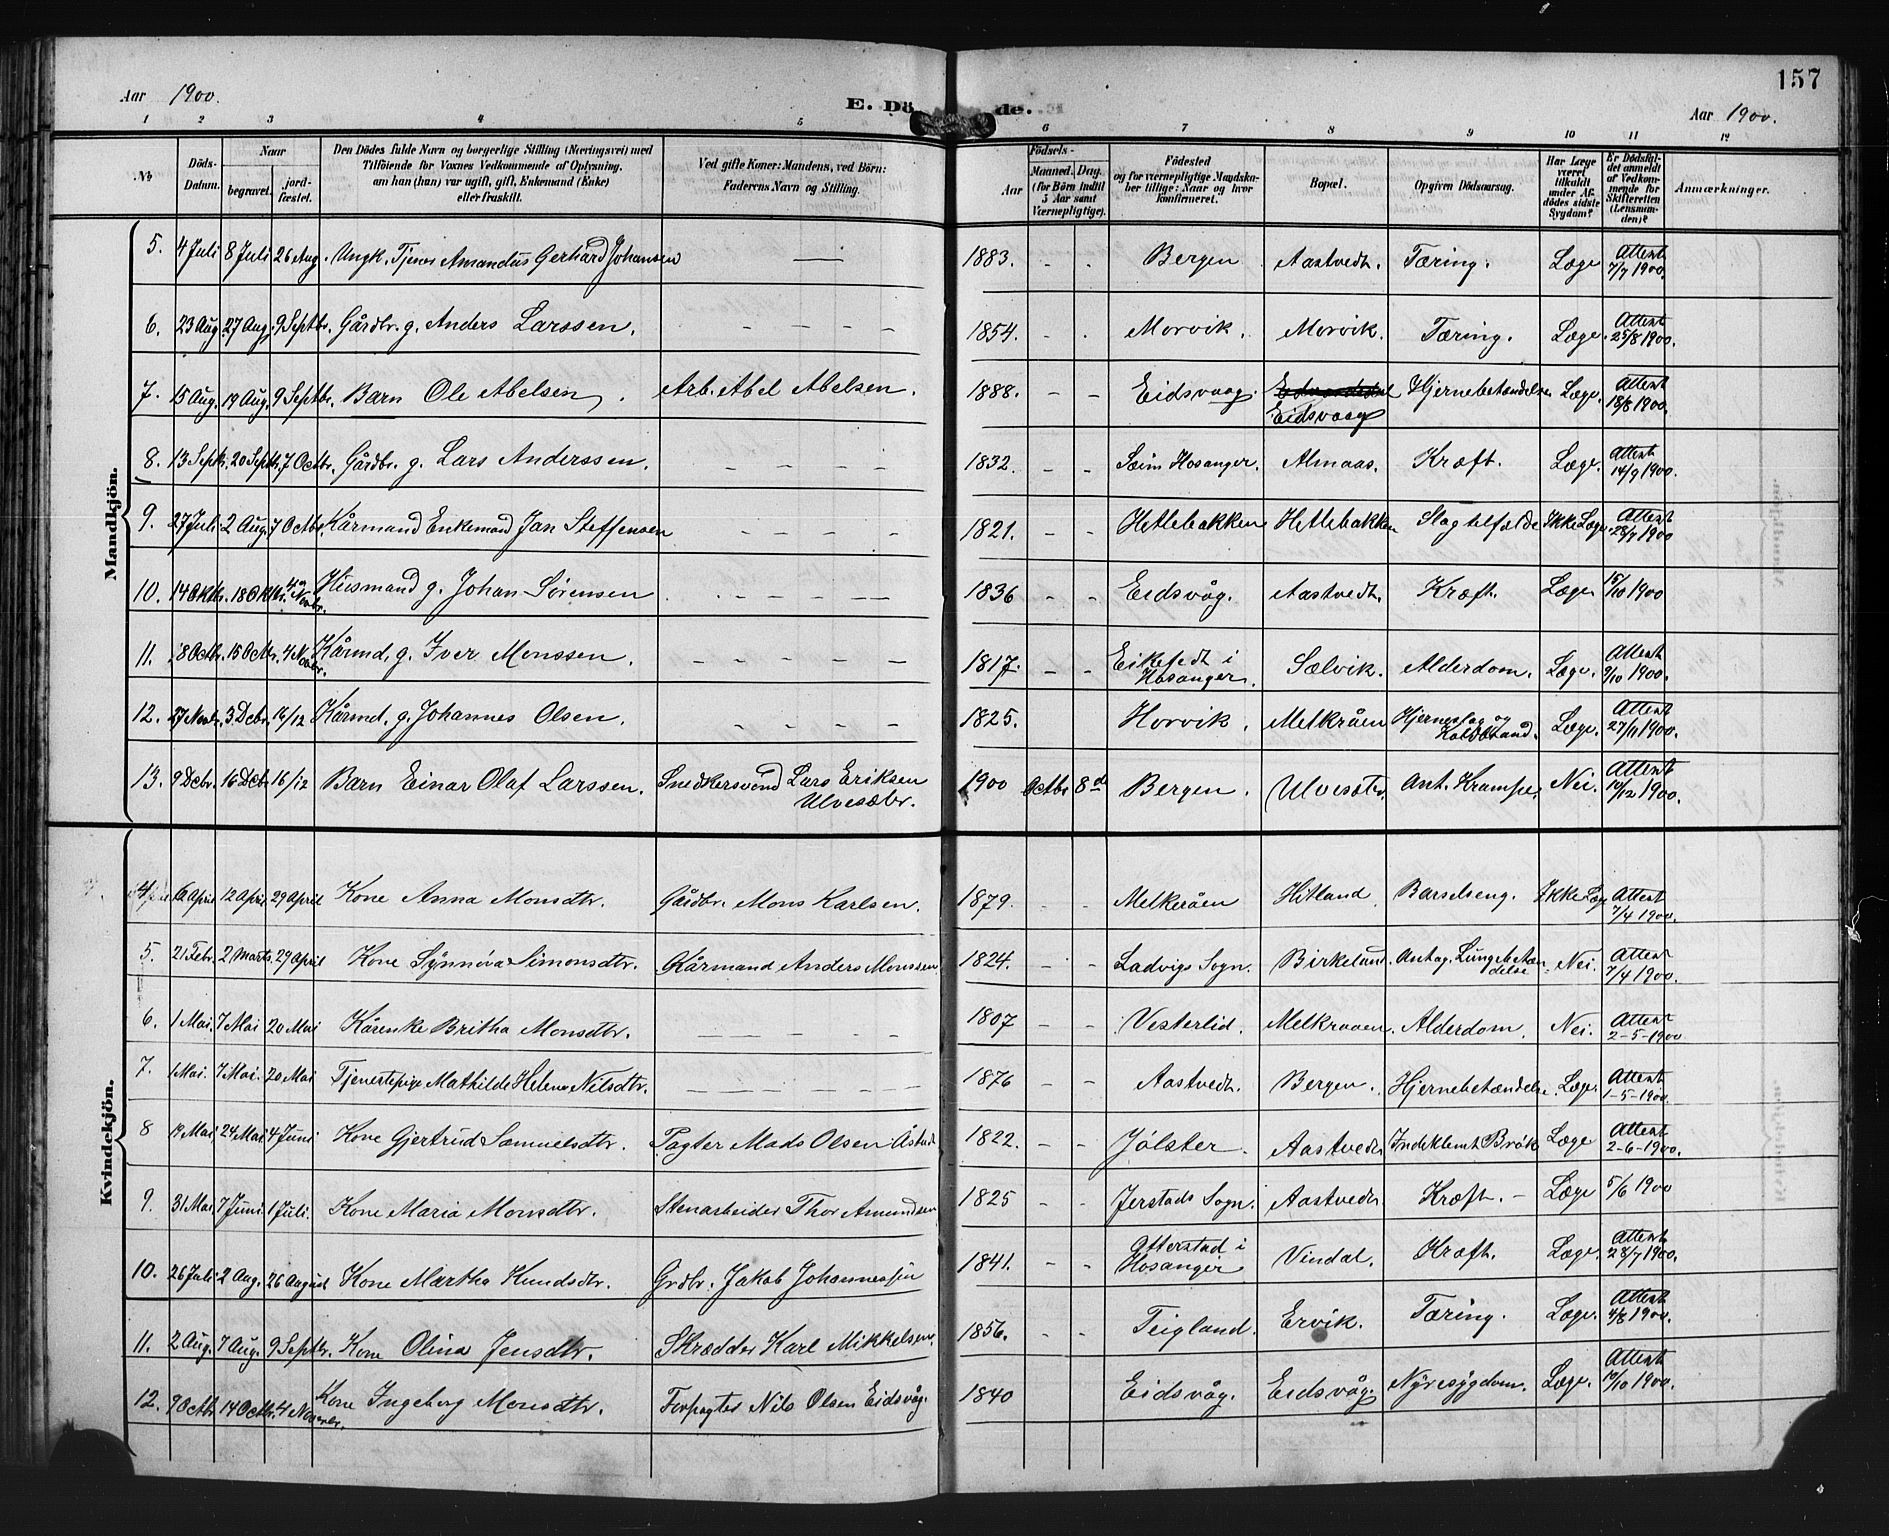 157
Aar 1900.
E. Dö de.
Aar 1900.
1 2 3 4 5 6 7 8 9 10 11 12
No
Döds-Datum.
Naar
begravet.
jord-fæstet.
Den Dödes fulde Navn og borgerlige Stilling (Næringsvei) med
Tilföiende for Voxnes Vedkommende af Oplysning,
om han (hun) var ugift, gift, Enkemand (Enke)
eller fraskilt.
Ved gifte Koner: Mandens, ved Börn:
Faderens Navn og Stilling.
Födsels-
Aar
Maaned. Dag.
(for Börn indtil
5 Aar samt
Værnepligtige).
Födested
og for værnepligtige Mandska-
ber tillige: Naar og hvor
konfirmeret.
Bopæl.
Opgiven Dödsaarsag.
Har Læge
været
tilkaldt
under Af-
dödes sidste
Sygdom?
Er Dödsfal-
det anmeldt
af Vedkom-
mende for
Skifteretten
(Lensman-
den)?
Anmærkninger.
Mandkjön.
5. 4 Juli 8 Juli 26 Aug. Ungk. Tjener Amandus Gerhard Johansen — 1883. - - Bergen Aastvedt. Tæring. Læge Attest 7/7 1900.
6. 23 Aug. 27 Aug. 9 Septbr. Gårdbr. g. Anders Larssen. - - - - 1854. - . Morvik. Morvik. Tæring. Læge. Attest 25/8 1900.
7. 15 Aug. 19 Aug. 9 Septbr. Barn Ole Abelsen. Arb. Abel Abelsen. 1888. - - Eidsvaag. Eidsvaag Hjernebetændelse Læge. Attest 18/8 1900.
8. 13 Septr. 20 Septbr. 7 Octbr. Gårdbr. g. Lars Anderssen. - - - - 1832. - - Sæim Hosanger. Almaas. Kræft. Læge. Attest 14/9 1900.
9. 27 Juli 2 Aug. 7 Octbr. Kårmand Enkemand Jan Steffensen - - - - 1821. - - Hetlebakken Hetlebakken Slagtilfælde Ikke Læge Attest 28/7 1900
10. 14 Oktbr. 18 Oktbr. 4 Novbr. Husmand g. Johan Sørensen - - - - 1836 - - Eidsvåg. Aastvedt. Kræft. Læge 15/10 1900
11. 8 Octbr. 15 Octbr. 4 Novbr. Kårmd. g. Iver Monssen. - - - - 1817. - - Eikefedt i Hosanger. Sælvik. Alderdom. Læge. Attest 9/10 1900.
12. 27 Novbr. 3 Decbr. 16/12 Kårmd. g. Johannes Olsen. - - - - 1825. Horvik. Melkråen Hjerneslag og Koldbrand. Læge. Attest 27/11 1900.
13. 9 Decbr. 16 Decbr 16/12 Barn Einar Olaf Larssen. Snedkersvend Lars Eriksen Ulvesæter. 1900 Octbr 8de Bergen. Ulvesæter. Ant. Krampe. Nei. Attest 10/12 1900.
Kvindekjön.
4 6 April 12 April 29 April Kone Anna Monsdtr. Gårdbr. Mons Karlsen. 1879. - - Melkeråen Hitland. Barselseng. Ikke Læge Attest 7/4 1900.
5. 21 Febr. 2 Marts. 29 April Kone Synnøva Simonsdtr. Kårmand Anders Monssen 1824. - - Ladvigs Sogn. Birkeland. Antag. Lungebetændelse. Nei. Attest 7/4 1900.
6. 1 Mai. 7 Mai 20 Mai Kårenke Britha Monsdtr. - - - - 1807 - - Vesterlid. Melkraaen. Alderdom. Nei. Attest 2-5-1900
7. 1 Mai. 7 Mai. 20 Mai Tjenestepige Mathilde Helene Nilsdtr. - - - - 1876 - - Aastvedt. Bergen. Hjernebetændelse. Læge Attest 1-5-1900.
8 19 Mai. 24 Mai 4 Juni Kone Gjertrud Samuelsdtr. Pagter Mads Olsen Åstvedt 1822. - - Jølster. Aastvedt Indeklemt Brók Læge Attest 2-6-1900.
9. 31 Mai 7 Juni 1 Juli. Kone Maria Monsdtr. Stenarbeider Thor Amundsen 1825 - - Jerstads Sogn. Aastvedt Kræft. - Læge 5/6 1900
10. 26 Juli 2 Aug. 26 August Kone Martha Knudsdtr. Grdbr. Jakob Johannessen 1841. - - Atterstad i Hosanger Vindal. Kræft. Læge. Attest 28/7 1900.
11. 2 Aug. 7 Aug. 9 Septbr. Kone Olina Jensdtr. Skrædder Karl Mikkelsen. 1856. - - Teigland. Ervik. Tæring. Læge. Attest 4/8 1900.
12. 9 Octbr 14 Octbr. 4 November. Kone Ingeborg Monsdtr. Forpagter Nils Olsen Eidsvåg. 1840 Eidsvåg. Eidsvåg. Nyresygdom. Læge. Attest 10/10 1900.